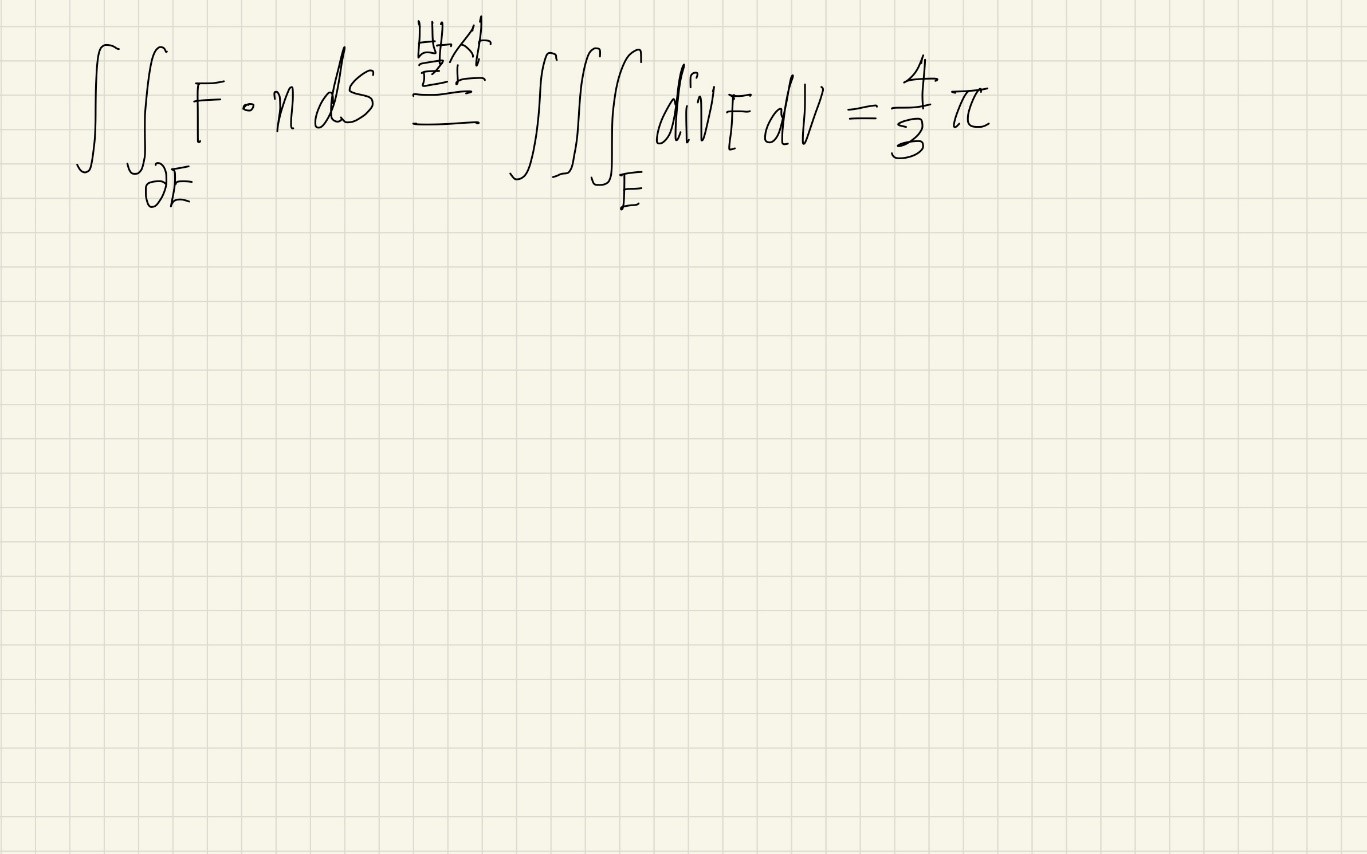 ∫∫_{∂E} F · n dS \overset{발산}{=} ∫∫∫_E div F dV = \frac{4}{3} π